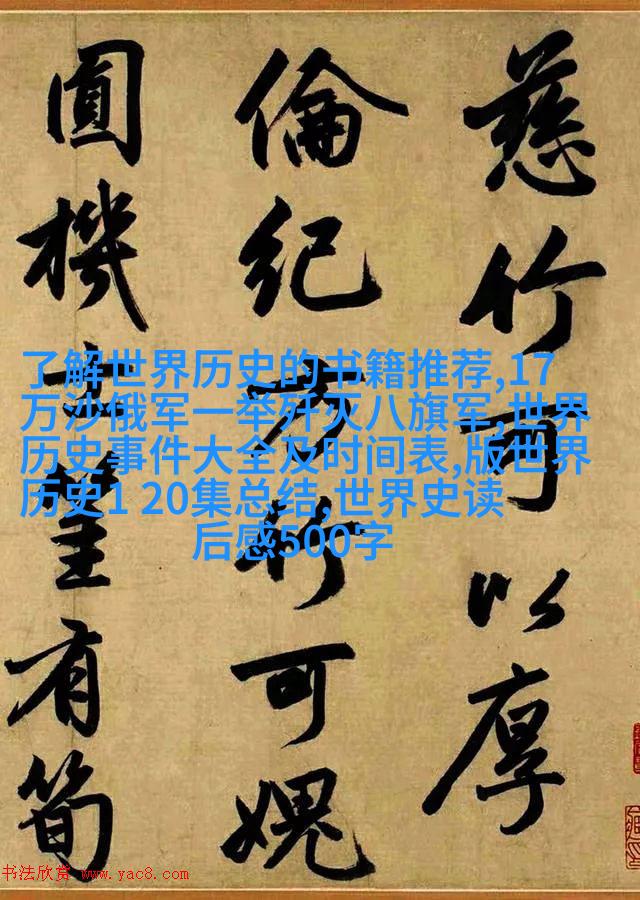 慈竹可以厚
倫紀方竹可愧
圓機士有筍
了解世界历史的书籍推荐,17
万沙俄军一举歼灭八旗军,世界
历史事件大全及时间表,版世界
历史1 20集总结,世界史读
后感500字
书法欣赏 www.yac8.com